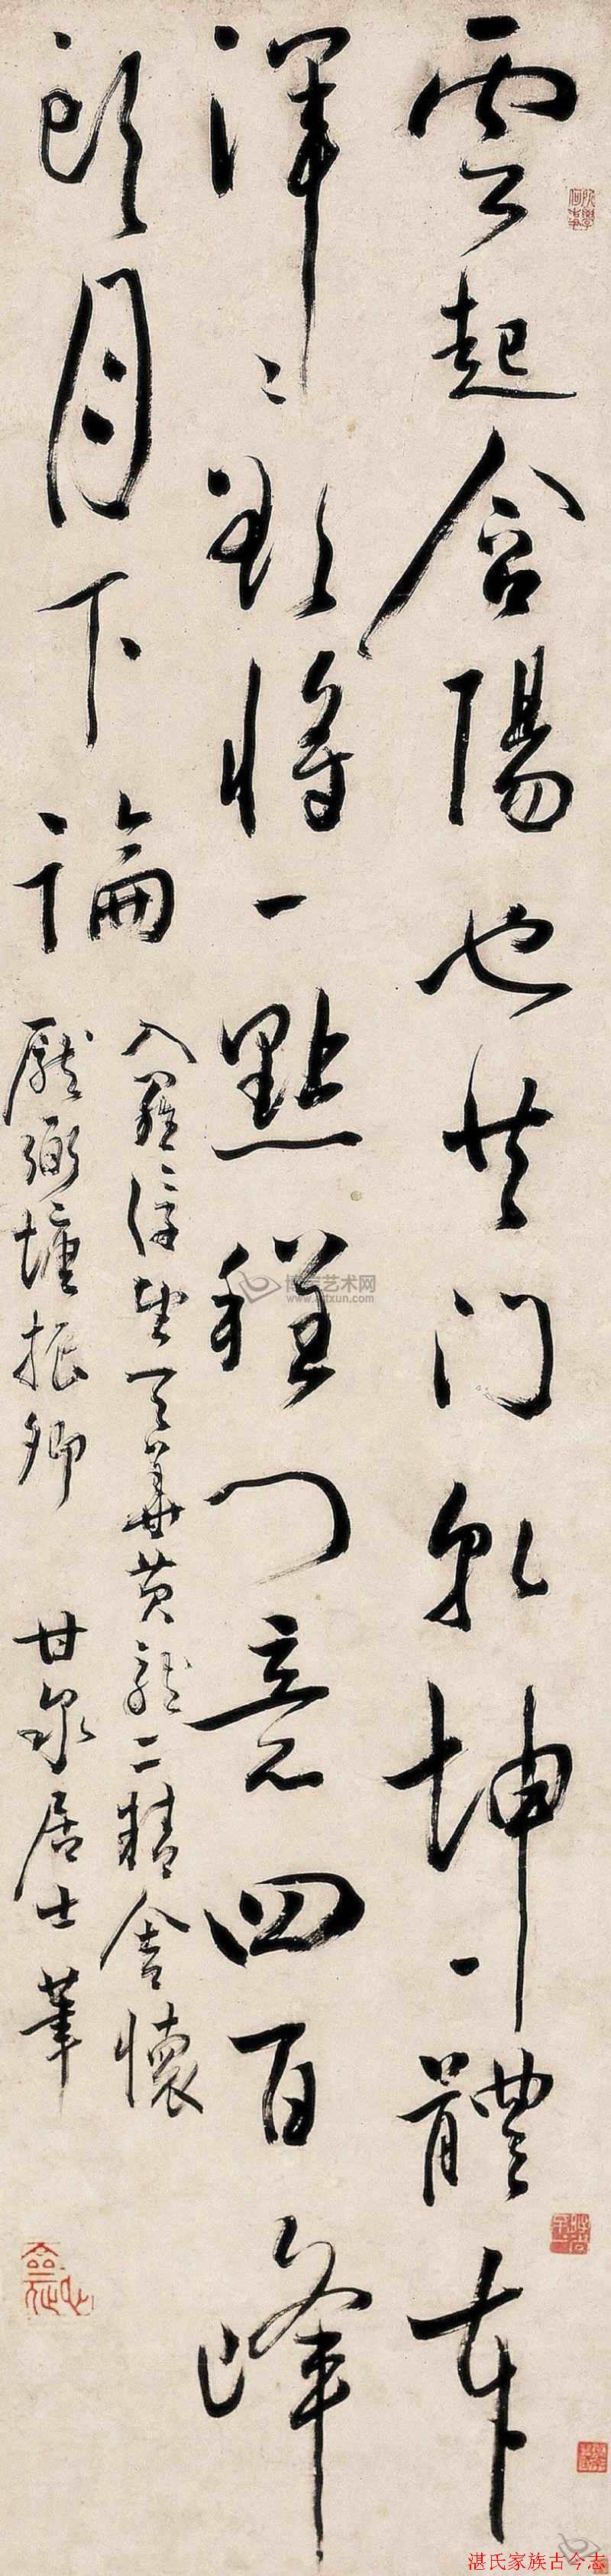 雲起合陽也共門乾坤一體本
渾〻欲將一點程門意四百峰
頭月下論
入羅浮望天華黃龍二精舍懷
龐弼塘振卿 甘泉居士筆
博宝艺术网
www.artxun.com
湛氏家族古今志